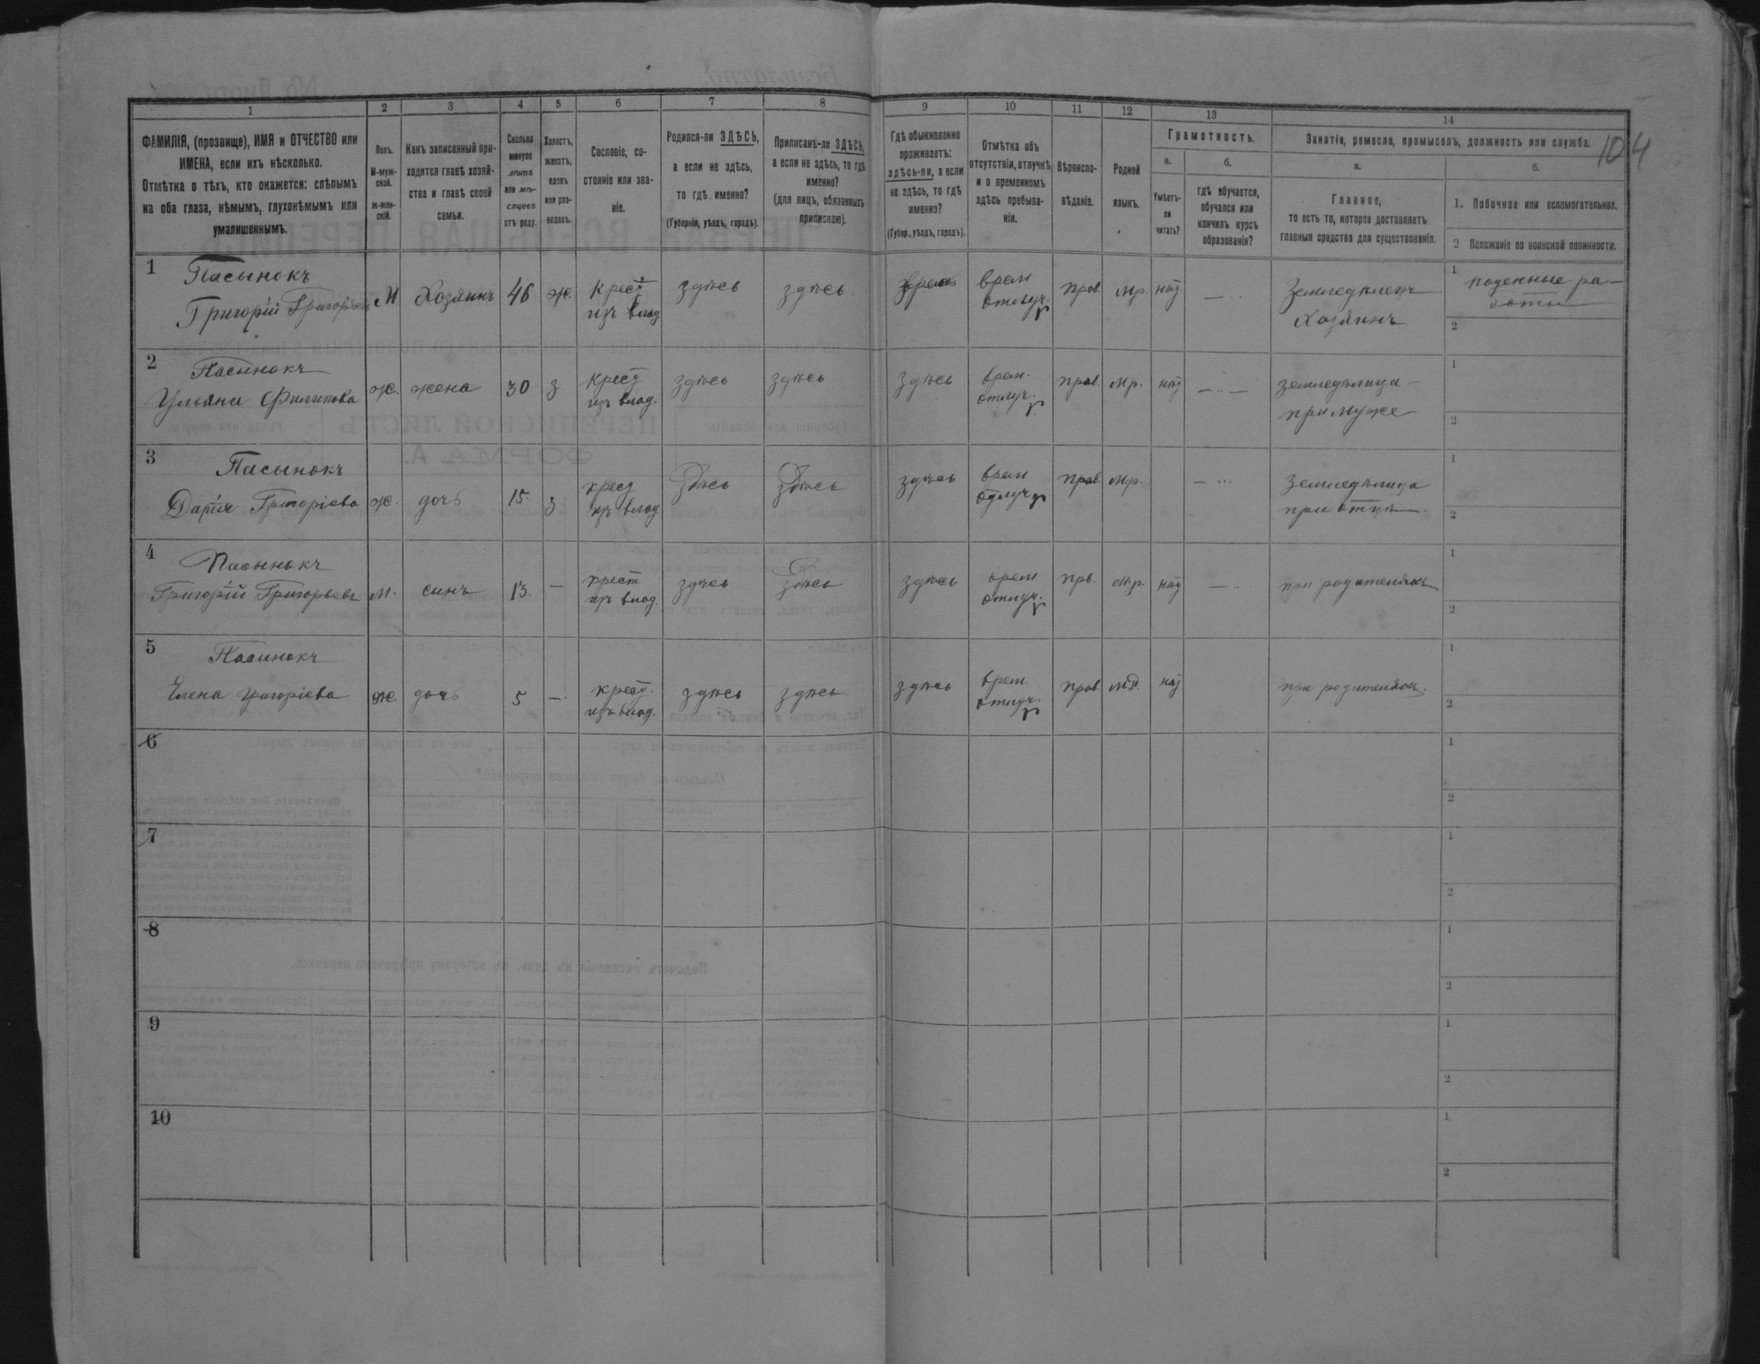 104
1 2 3 4 5 6 7 8 9 10 11 12 13 14
ФАМИЛІЯ, (прозвище), ИМЯ и ОТЧЕСТВО или
ИМЕНА, если ихъ нѣсколько.
Отмѣтка о тѣхъ, кто окажется: слѣпымъ
на оба глаза, нѣмымъ, глухонѣмымъ или
умалишеннымъ.
Полъ.
М-муж-
ской.
Ж-жен-
скій.
Какъ записанный при-
ходится главѣ хозяй-
ства и главѣ своей
семьи.
Сколько
минуло
лѣтъ
или мѣ-
сяцевъ
отъ роду.
Холостъ,
женатъ,
вдовъ
или раз-
веденъ.
Сословіе, со-
стояніе или зва-
ніе.
Родился-ли ЗДѢСЬ,
а если не здѣсь,
то гдѣ именно?
(Губернія, уѣздъ, городъ).
Приписанъ-ли ЗДѢСЬ,
а если не здѣсь, то гдѣ
именно?
(для лицъ, обязанныхъ
припискою).
Гдѣ обыкновенно
проживаетъ:
здѣсь-ли, а если
не здѣсь, то гдѣ
именно?
(Губер., уѣздъ, городъ).
Отмѣтка объ
отсутствіи, отлучкѣ
и о временномъ
здѣсь пребыва-
ніи.
Вѣроиспо-
вѣданіе.
Родной
языкъ.
Грамотность.
а.
Умѣетъ-
ли
читать?
б.
гдѣ обучается,
обучался или
кончилъ курсъ
образованія?
Занятія, ремесло, промыселъ, должность или служба.
а.
Главное,
то есть то, которое доставляетъ
главныя средства для существованія.
б.
1. Побочное или вспомогательное.
2 Положеніе по воинской повинности.
1 Пасынокъ
Григорій Григорьевъ М Хозяинъ 46 ж. крест изъ влад здѣсь здѣсь врем отлуч. прав мр. нѣт — Земледѣлецъ Хозяинъ 1 поденные ра-
боты
2
2 Пасынокъ
Ульяна Филипова ж. жена 30 з крест изъ влад. здѣсь здѣсь здѣсь врем. отлуч. прав мр. нѣт — земледѣлица
при мужѣ 1
2
3 Пасынокъ
Дарія Григоріева ж. дочь 15. з крест изъ влад здѣсь здѣсь здѣсь врем отлуч прав мр. — земледѣлица
при отцѣ 1
2
4 Пасынокъ
Григорій Григорьевъ м. синъ 13. — крест изъ влад. здѣсь здѣсь здѣсь врем отлуч. прв. мр. нѣт — при родителяхъ 1
2
5 Пасынокъ
Елена Григоріева ж. дочь 5 — крест. изъ влад. здѣсь здѣсь здѣсь врем. отлуч. прав мр. нѣт при родителяхъ. 1
2
6 1
2
7 1
2
8 1
2
9 1
2
10 1
2